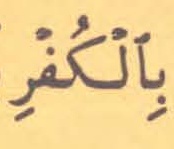 بِٱلۡكُفۡرِ